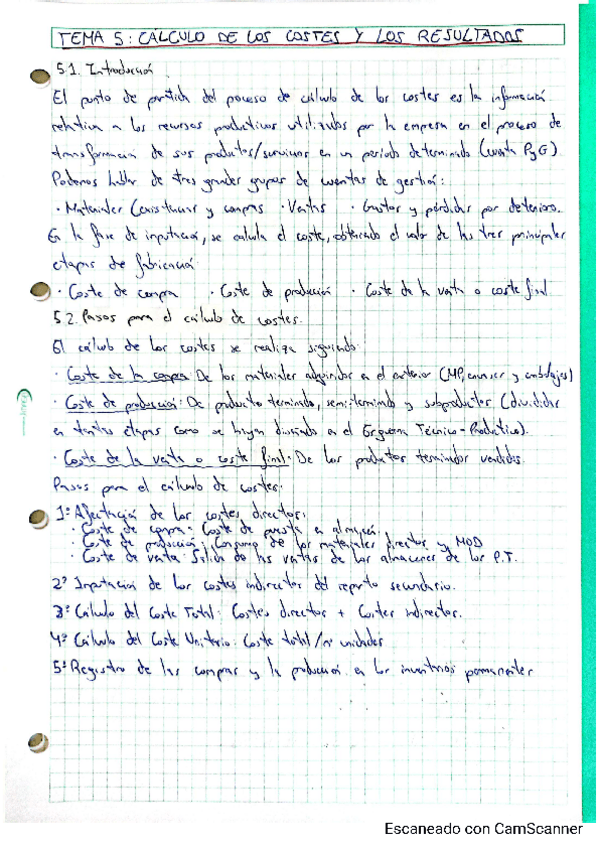 TEMA 5: CALCULO DE LOS COSTES Y LOS RESULTADOS
5.1. Introducción
El punto de partida del proceso de cálculo de los costes es la información
relativa a los recursos productivos utilizados por la empresa en el proceso de
transformación de sus productos/servicios en un periodo determinado (cuenta PyG).
Podemos hablar de tres grandes grupos de cuentas de gestión:
· Materiales (existencias y compras · Ventas · Gastos y pérdidas por deterioro.
En la fase de imputación, se calcula el coste, obteniendo el valor de las tres principales
etapas de fabricación:
· Coste de compra · Coste de producción · Coste de la venta o coste final
5.2. Pasos para el cálculo de costes.
El cálculo de los costes se realiza siguiendo:
· Coste de la compra: De los materiales adquiridos en el exterior (MP, envases y embalajes)
· Coste de producción: De productos terminado, semiterminado y subproductos (divididos
en tantas etapas como se hayan dividido en el Esquema Técnico-Productivo).
· Coste de la venta o coste final: De los productos terminados vendidos.
Pasos para el cálculo de costes:
1º Afectación de los costes directos:
· Coste de compra: Coste de puesta en almacén.
· Coste de producción: Consumo de los materiales directos y MOD
· Coste de venta: Salida de las ventas de los almacenes de los P.T.
2º Imputación de los costes indirectos del reparto secundario.
3º Cálculo del Coste Total: Costes directos + Costes indirectos.
4º Cálculo del Coste Unitario: Coste total/nº unidades
5º Registro de las compras y la producción en los inventarios permanentes
Escaneado con CamScanner